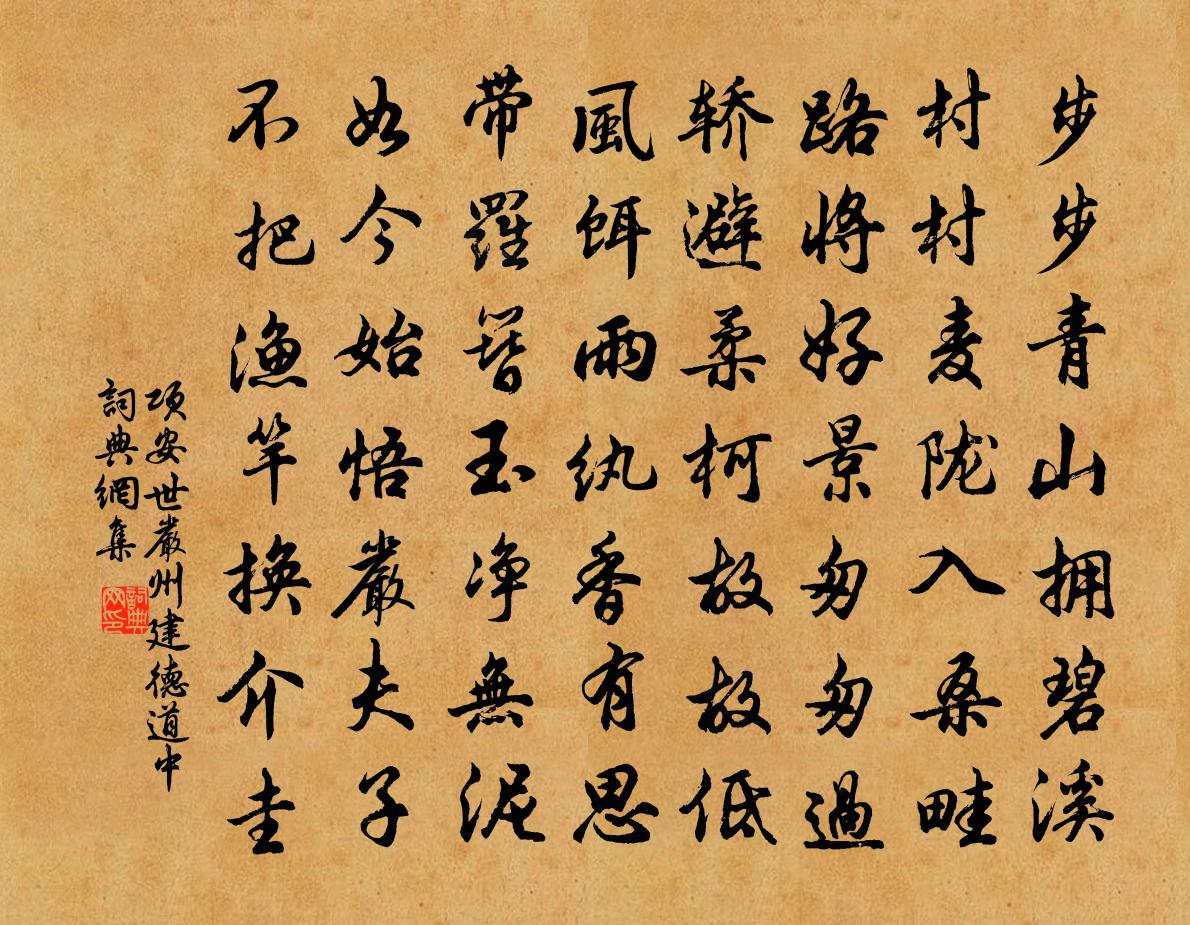 步步青山拥碧溪
村村麦陇入桑畦
路將好景匆匆過
轿避柔柯故故低
風餌雨紈香有思
帶羅簪玉净無泥
如今始悟嚴夫子
不把漁竿換介圭
项安世嚴州建德道中
詞典網集
詞典網印